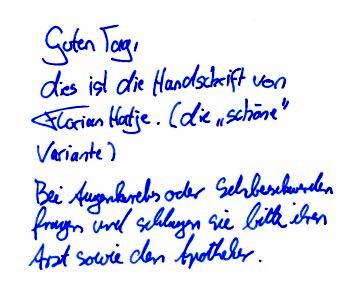 Guten Tag,
dies ist die Handschrift von
Florian Hatje. (die „schöne"
Variante)
Bei Augenkrebs oder Sehbeschwerden
fragen und schlagen sie bitte ihren
Arzt sowie den Apotheker.